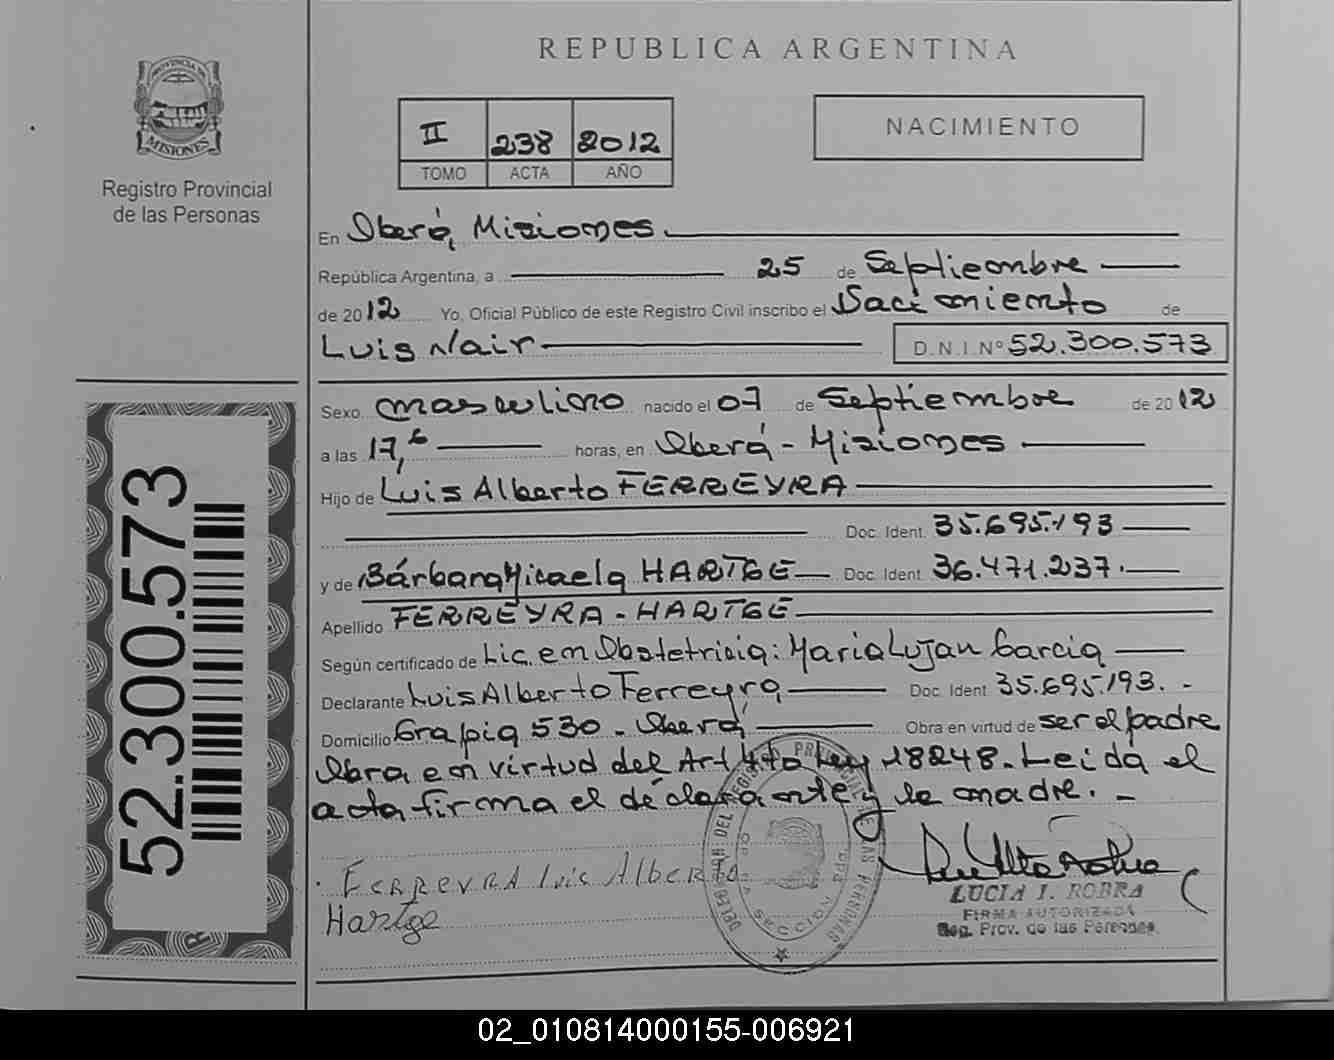 REPUBLICA ARGENTINA
PROVINCIA DE
MISIONES
Registro Provincial
de las Personas
II 238 2012
TOMO ACTA AÑO
NACIMIENTO
En Oberá, Misiones.
República Argentina, a 25 de Septiembre
de 2012 Yo, Oficial Público de este Registro Civil inscribo el Nacimiento de
Luis Nair D.N.I. Nº 52.300.573
Sexo masculino nacido el 07 de Septiembre de 2012
a las 17, horas, en Oberá - Misiones
Hijo de Luis Alberto FERREYRA
Doc. Ident. 35.695.193
y de Bárbara Micaela HARTGE Doc. Ident. 36.471.237.
Apellido FERREYRA - HARTGE
Según certificado de Lic. en Obstetricia: Maria Lujan Garcia
Declarante Luis Alberto Ferreyra Doc. Ident. 35.695.193. -
Domicilio 530 - Oberá Obra en virtud de ser el padre
Obra en virtud del Art 4to Ley 18248. Leida el
acta firma el declarante y la madre. -
FERREYRA Luis Alberto
Hartge
LUCIA I. ROBRA
FIRMA AUTORIZADA
Reg. Prov. de las Personas
52.300.573
02_010814000155-006921